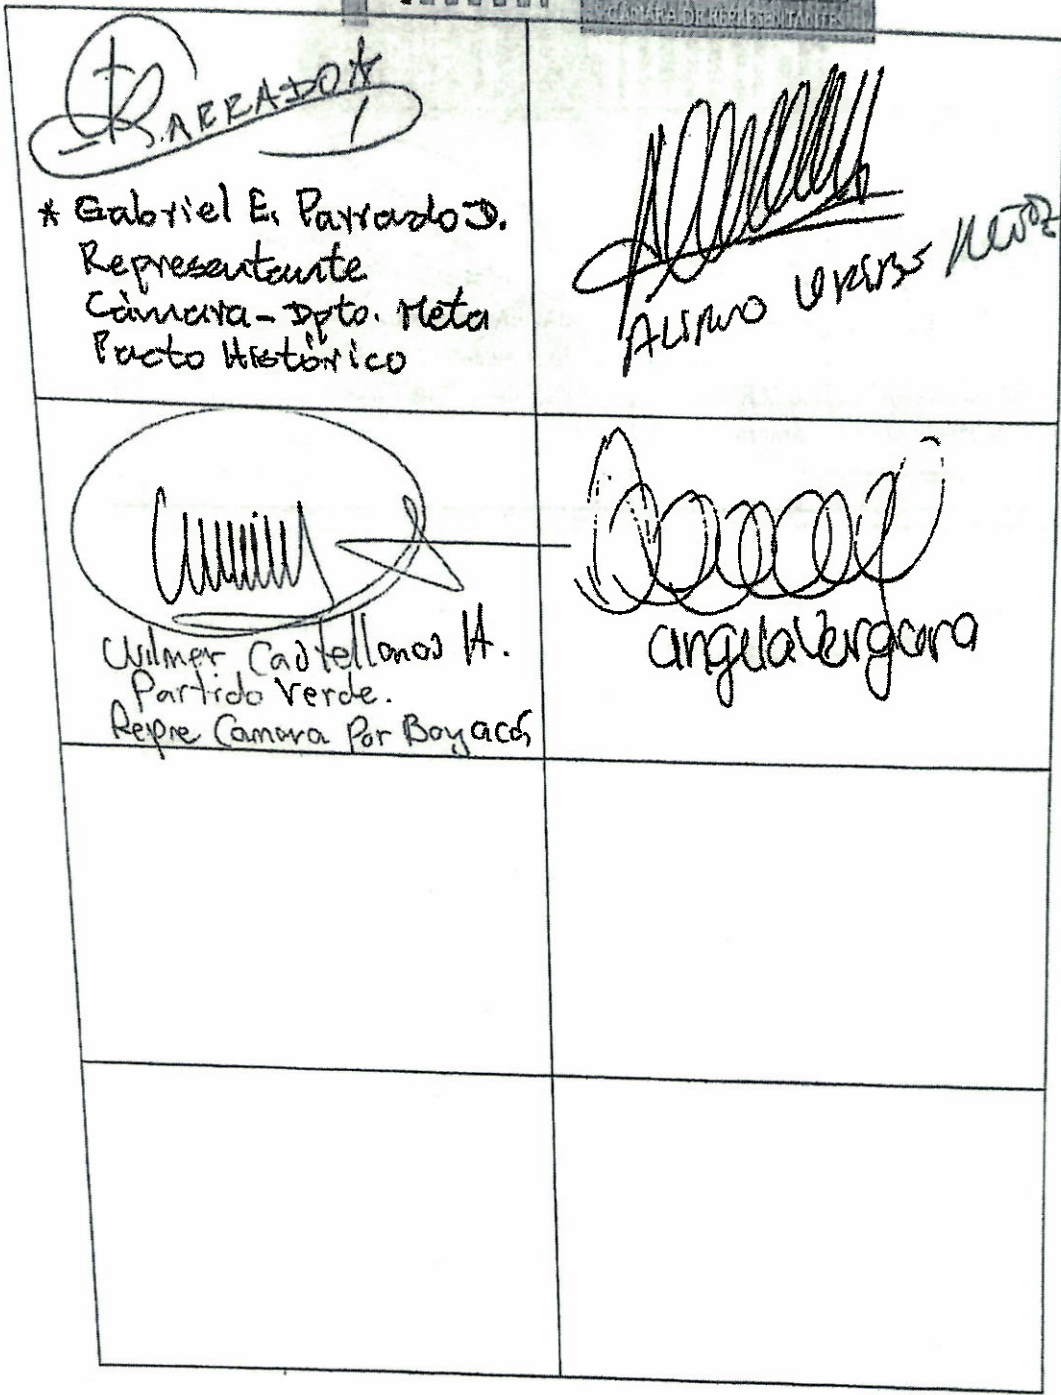 CÁMARA DE REPRESENTANTES
PARRADO
* Gabriel E. Parrado D.
Representante
Cámara - Dpto. Meta
Pacto Histórico
ALIRIO URIBE MUÑOZ
Wilmer Castellanos H.
Partido Verde.
Repre Camara Por Boyacá
angela Vergara